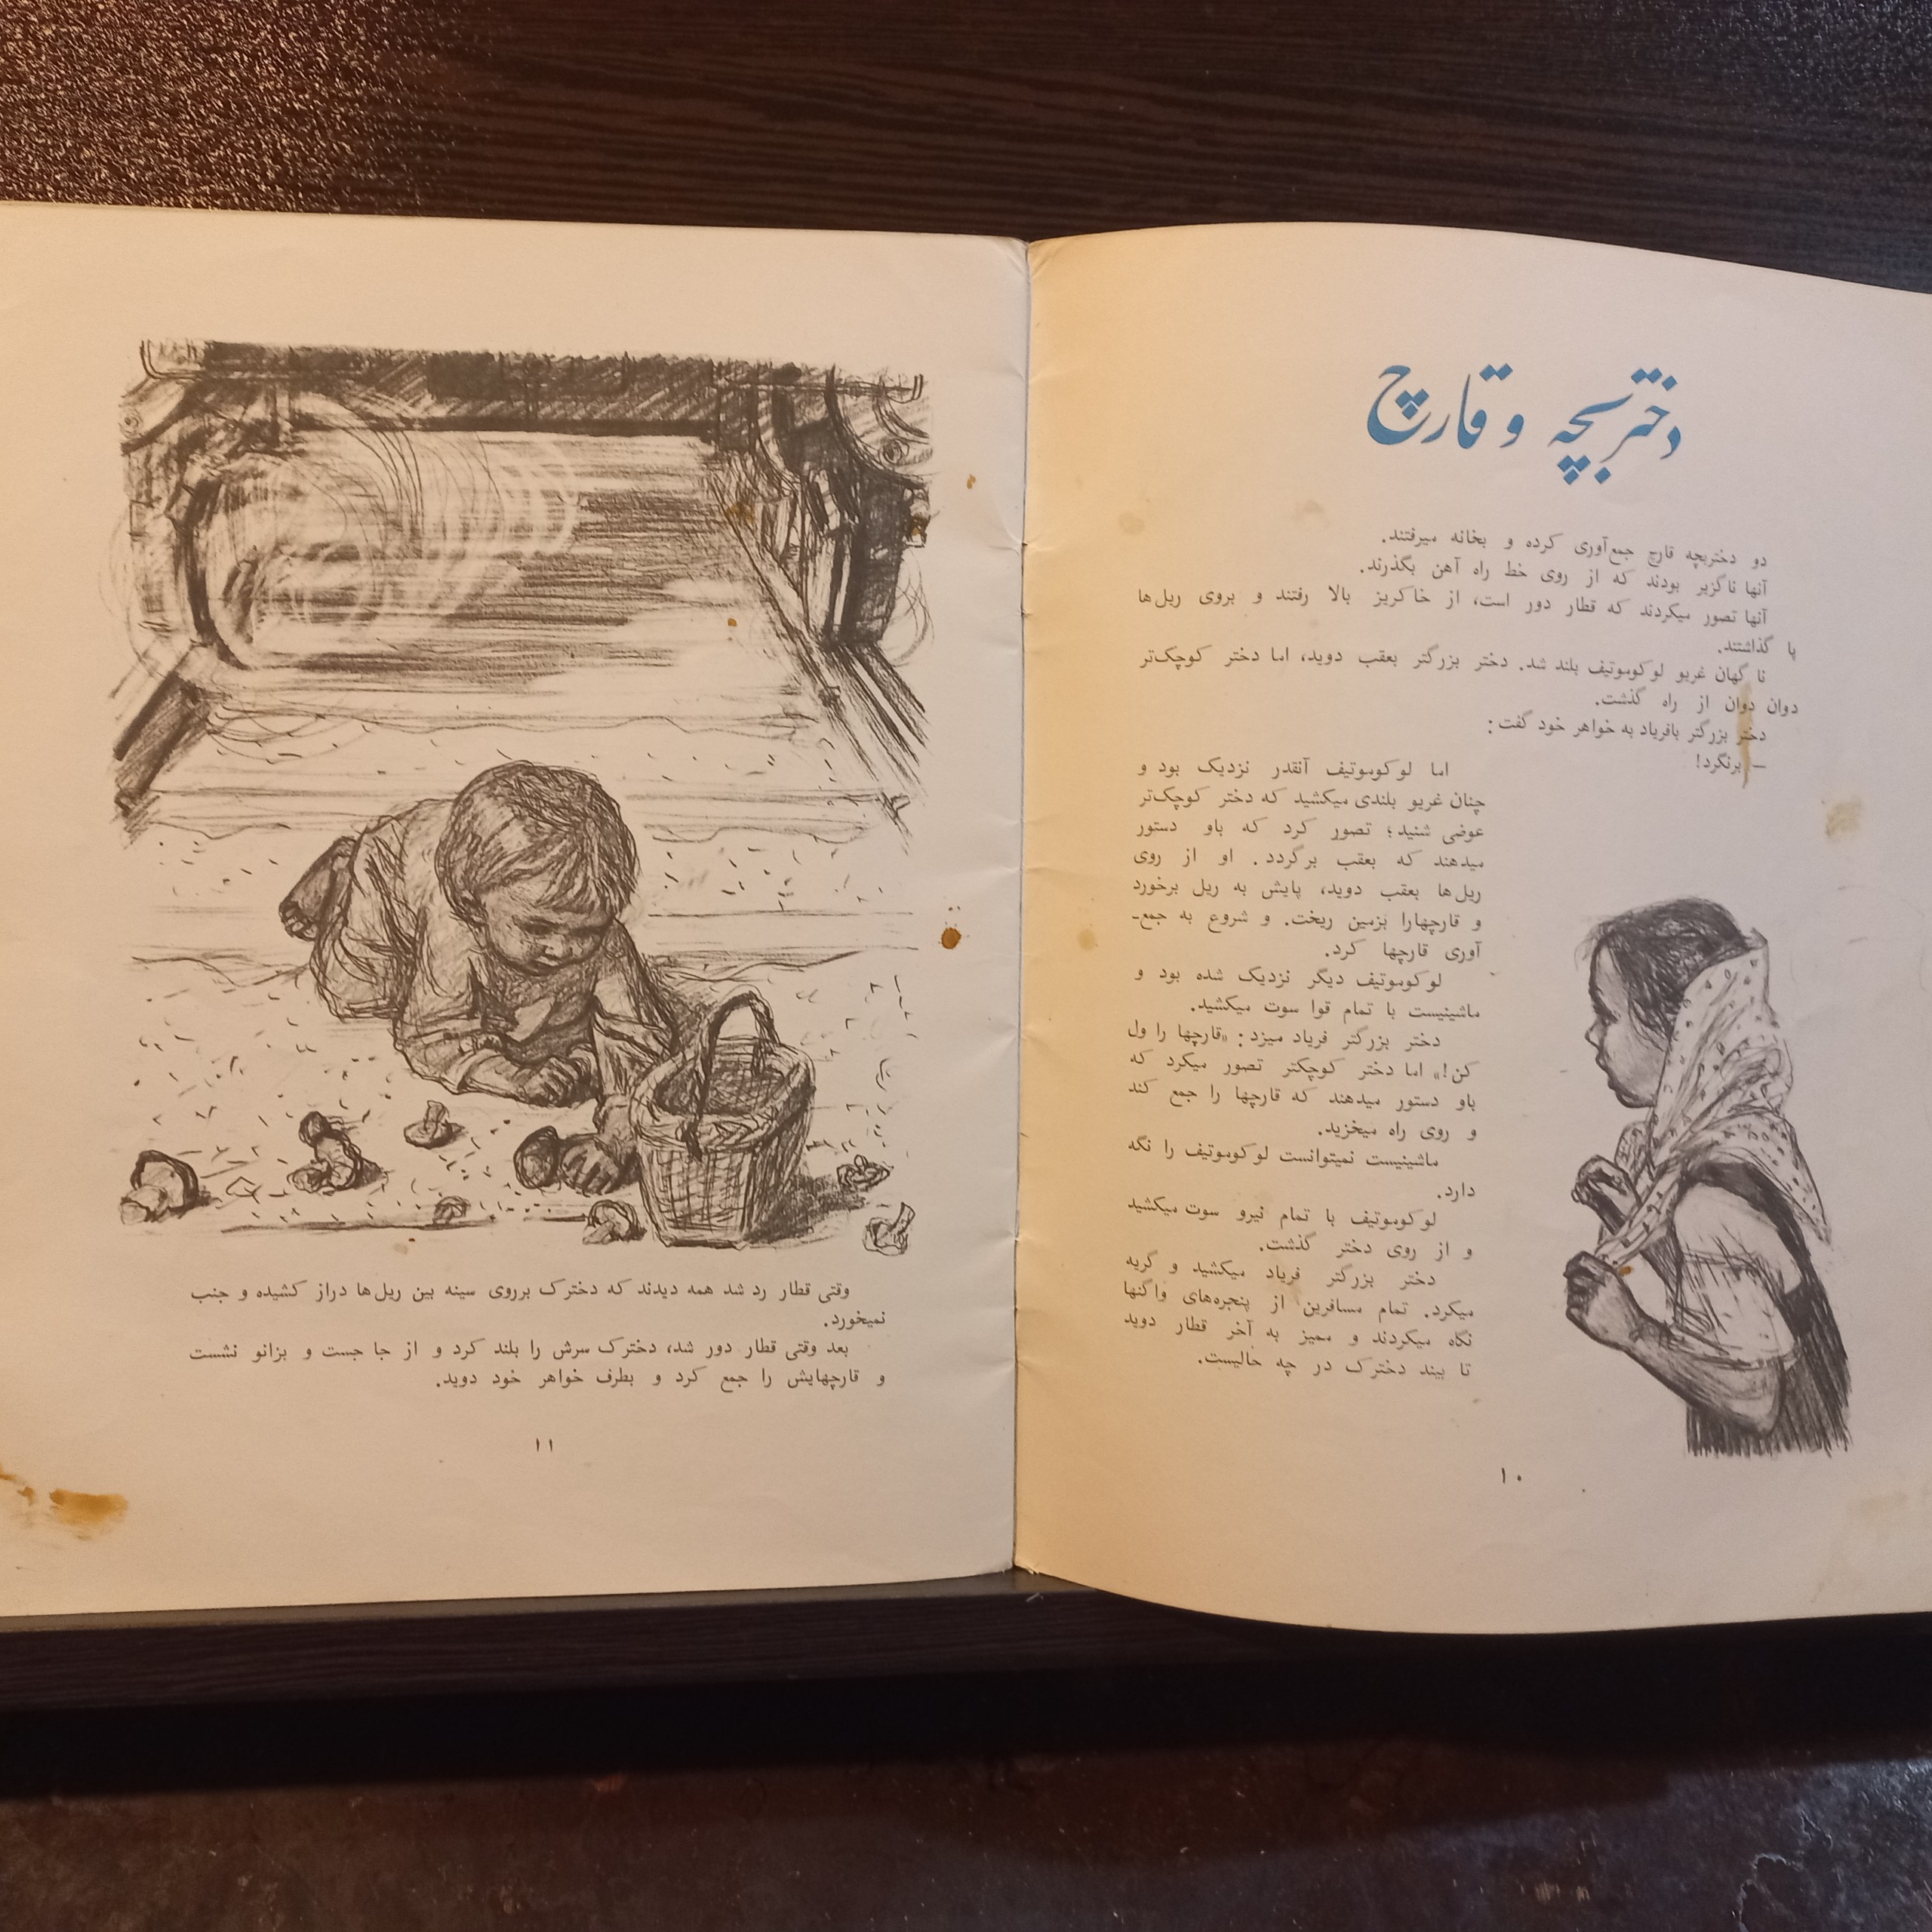 دختربچه و قارچ
دو دختربچه قارچ جمع‌آوری کرده و بخانه میرفتند.
آنها ناگزیر بودند که از روی خط راه آهن بگذرند.
آنها تصور میکردند که قطار دور است، از خاکریز بالا رفتند و بروی ریل‌ها
پا گذاشتند.
ناگهان غریو لوکوموتیف بلند شد. دختر بزرگتر بعقب دوید، اما دختر کوچک‌تر
دوان دوان از راه گذشت.
دختر بزرگتر بافریاد به خواهر خود گفت:
– برنگرد!
اما لوکوموتیف آنقدر نزدیک بود و
چنان غریو بلندی میکشید که دختر کوچک‌تر
عوضی شنید؛ تصور کرد که باو دستور
میدهند که بعقب برگردد. او از روی
ریل‌ها بعقب دوید، پایش به ریل برخورد
و قارچهارا بزمین ریخت. و شروع به جمع-
آوری قارچها کرد.
لوکوموتیف دیگر نزدیک شده بود و
ماشینیست با تمام قوا سوت میکشید.
دختر بزرگتر فریاد میزد: «قارچها را ول
کن!» اما دختر کوچکتر تصور میکرد که
باو دستور میدهند که قارچها را جمع کند
و روی راه میخزید.
ماشینیست نمیتوانست لوکوموتیف را نگه
دارد.
لوکوموتیف با تمام نیرو سوت میکشید
و از روی دختر گذشت.
دختر بزرگتر فریاد میکشید و گریه
میکرد. تمام مسافرین از پنجره‌های واگنها
نگاه میکردند و ممیز به آخر قطار دوید
تا بیند دخترک در چه حالیست.
۱۰
وقتی قطار رد شد همه دیدند که دخترک برروی سینه بین ریل‌ها دراز کشیده و جنب
نمیخورد.
بعد وقتی قطار دور شد، دخترک سرش را بلند کرد و از جا جست و بزانو نشست
و قارچهایش را جمع کرد و بطرف خواهر خود دوید.
۱۱